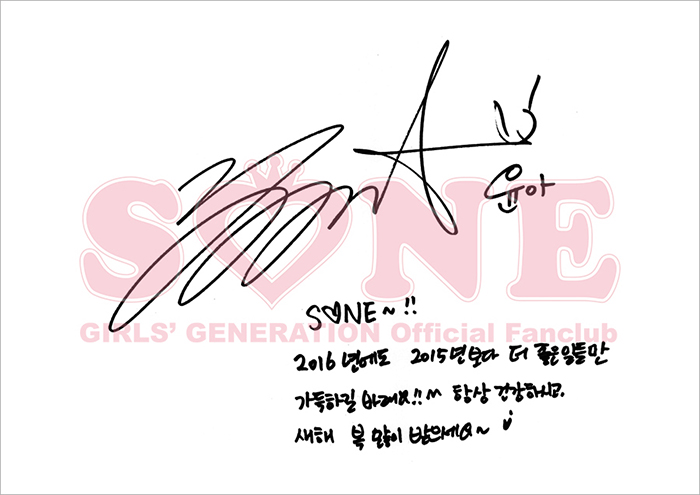 윤아
S♡NE
GIRLS' GENERATION Official Fanclub
S♡NE~!!
2016년에도 2015년보다 더 좋은일들만
가득하길 바래요!! ^^ 항상 건강하시고,
새해 복 많이 받으세요~